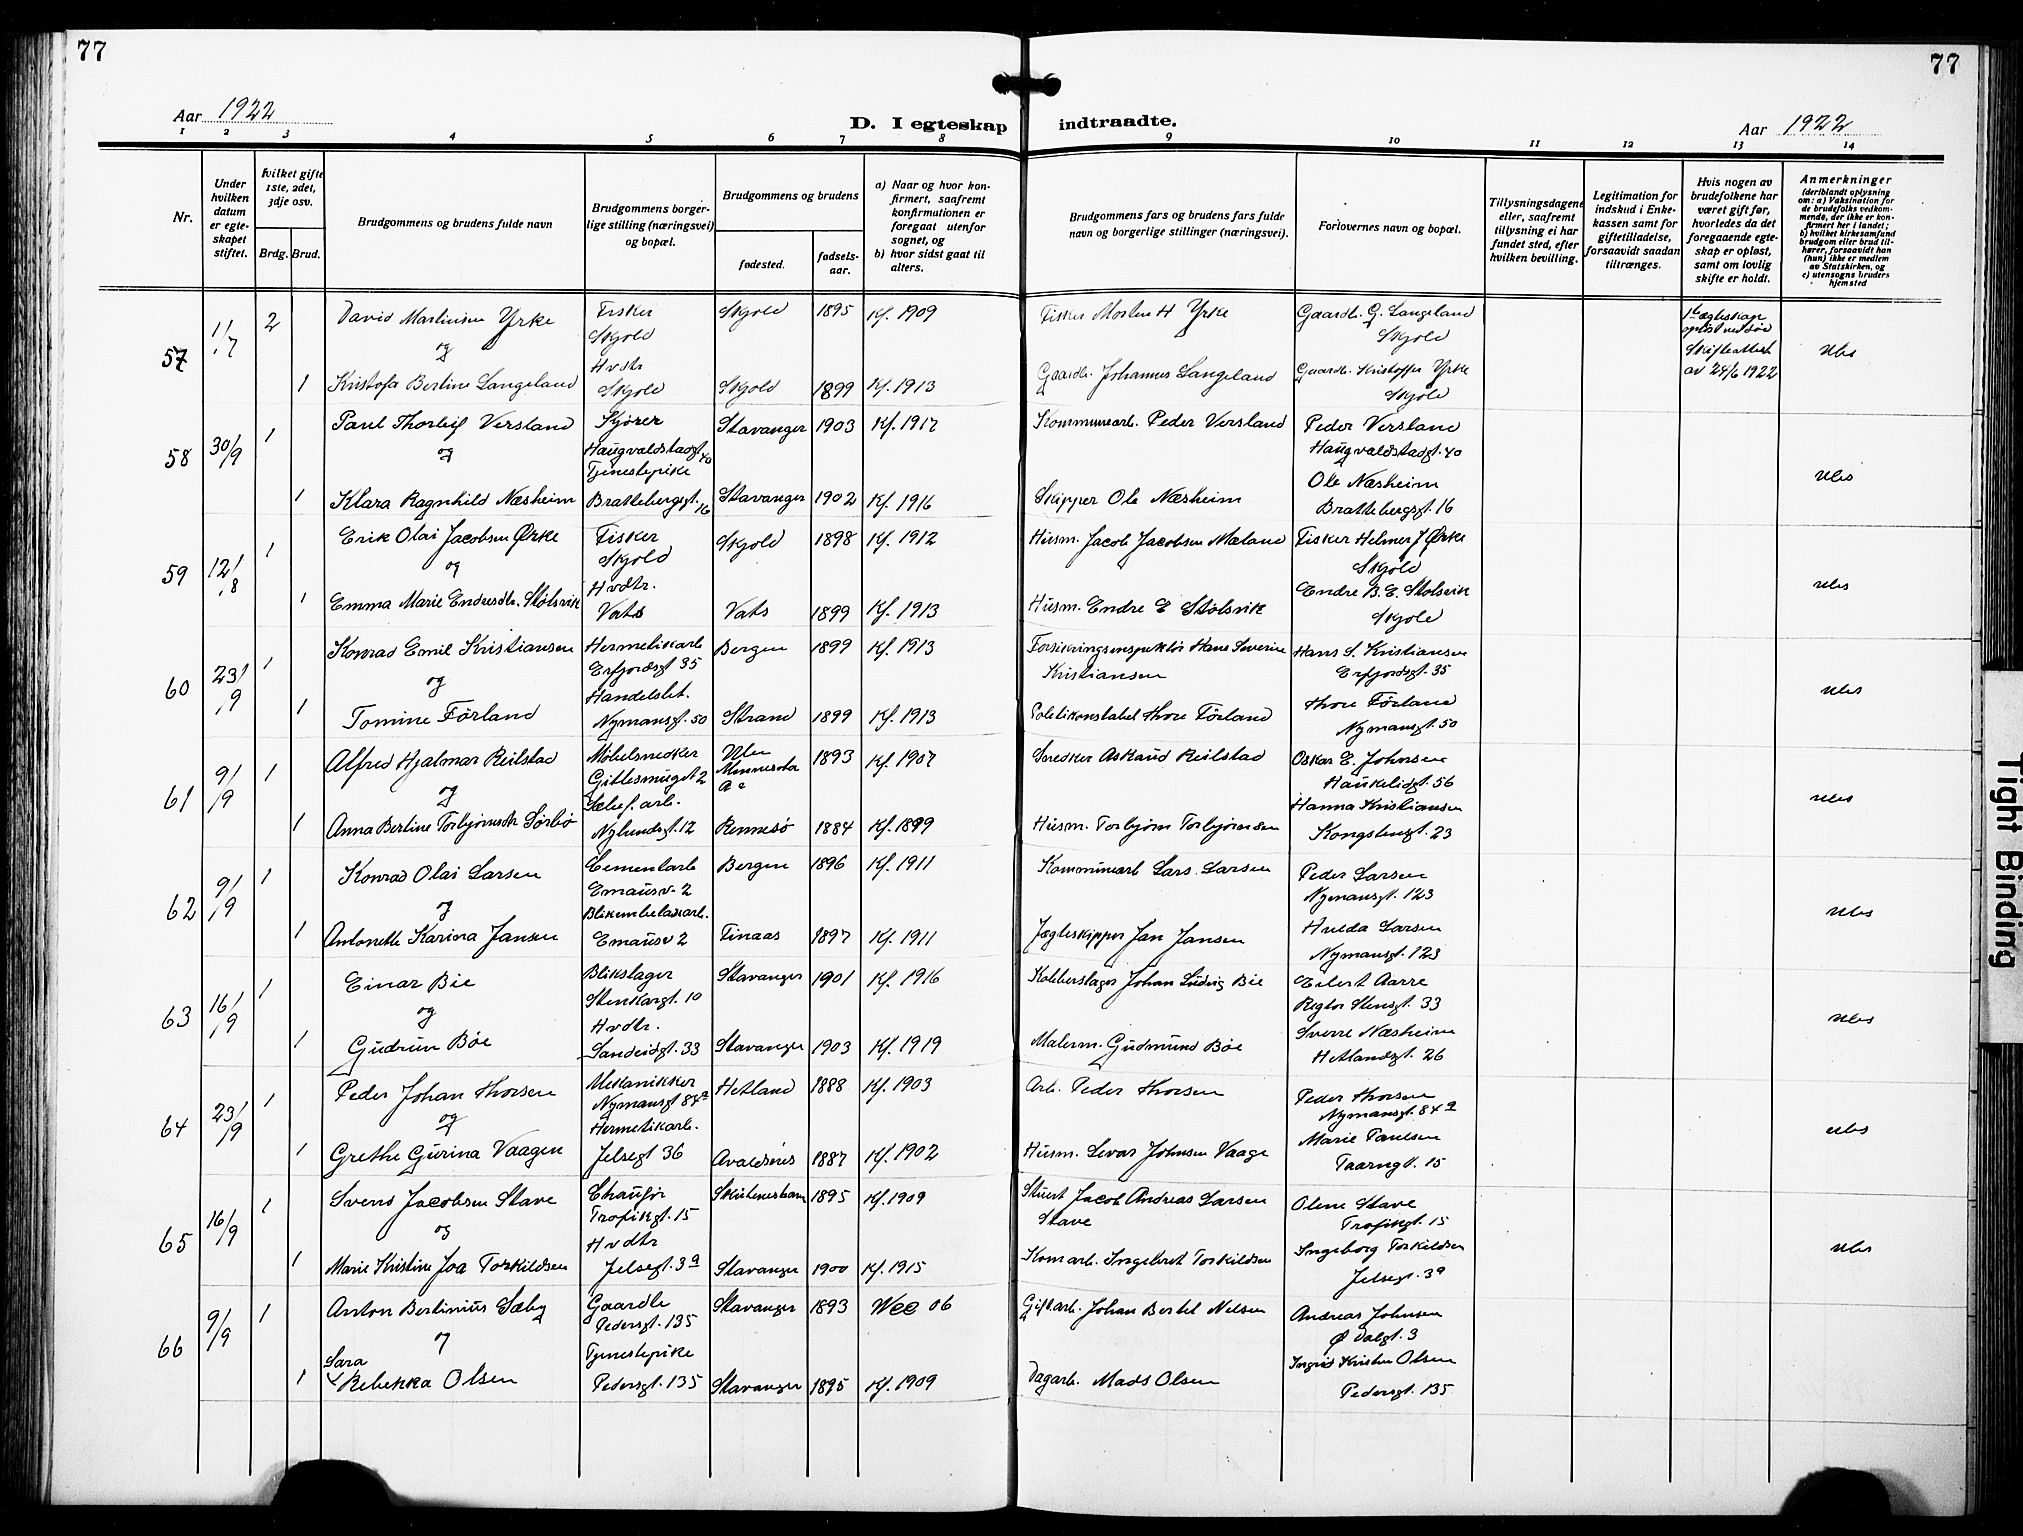 77
77
Aar 1922
D. I egteskap indtraadte.
Aar 1922
1 2 3 4 5 6 7 8 9 10 11 12 13 14
Nr.
Under hvilken datum er egteskapet stiftet.
hvilket gifte 1ste, 2det, 3dje osv.
Brdg. Brud.
Brudgommens og brudens fulde navn
Brudgommens borgerlige stilling (næringsvei) og bopæl.
Brudgommens og brudens
fødested.
fødselsaar.
a) Naar og hvor konfirmert, saafremt konfirmationen er foregaat utenfor sognet, og
b) hvor sidst gaat til alters.
Brudgommens fars og brudens fars fulde navn og borgerlige stillinger (næringsvei).
Forlovernes navn og bopæl.
Tillysningsdagene eller, saafremt tillysning ei har fundet sted, efter hvilken bevilling.
Legitimation for indskud i Enkekassen samt for giftetilladelse, forsaavidt saadan tiltrænges.
Hvis nogen av brudefolkene har været gift før, hvorledes da det foregaaende egteskap er opløst, samt om lovlig skifte er holdt.
Anmerkninger
(deriblandt oplysning om: a) Vaksination for de brudefolks vedkommende, der ikke er konfirmert her i landet;
b) hvilket kirkesamfund brudgom eller brud tilhører, forsaavidt han (hun) ikke er medlem av Statskirken, og
c) utensogns bruders hjemsted
57 1/7 2 David Martinsen Yrke Fisker Skjold Skjold 1895 Kf. 1909 Fisker Morten H Yrke Gaardb. G. Langeland Skjold
og
1 Kristofa Bertine Langeland Hvdtr Skjold Skjold 1899 Kf. 1913 Gaardb. Johannes Langeland Gaardb. Kristoffer Yrke Skjold
1ste egteskap opløst ved død Skifteattest av 24/6 1922
Ubs
58 30/9 1 Paul Thorleif Versland Kjører Haugvaldstadgt 40 Stavanger 1903 Kf. 1917 Kommunearb. Peder Versland Peder Versland Haugvaldstadgt. 40
og
1 Klara Ragnhild Næsheim Tjenestepike Brattebergsgt. 16 Stavanger 1902 Kf. 1916 Skipper Ole Næsheim Ole Næsheim Brattebergsgt. 16
Ubs
59 12/8 1 Erik Olai Jacobsen Ørke Fisker Skjold Skjold 1898 Kf. 1912 Husm. Jacob Jacobsen Mæland Fisker Helmer J Ørke Skjold
og
1 Emma Marie Endresdtr. Stølsvik Hvdtr. Vats Vats 1899 Kf. 1913 Husm. Endre E Stølsvik Endre B. E. Stølsvik Skjold
Ubs
60 23/9 1 Konrad Emil Kristiansen Hermetikarb Erfjordsgt 35 Bergen 1899 Kf. 1913 Forsikringsinspektør Hans Severin Kristiansen Hans S. Kristiansen Erfjordsgt. 35
og
1 Tomine Førland Handelsbt. Nymansgt. 50 Strand 1899 Kf. 1913 Politikonstabel Thore Førland Thore Førland Nymansgt. 50
Ubs
61 9/9 1 Alfred Hjalmar Reilstad Møbelsnedker 1893 Kf. 1907 Snedker Reilstad Oskar E. Johnsen Haukeligt. 56
Minnesota
og
1 Anna Bertine Torbjørnsdtr Sørbø arb. Nylundsgt. 12 Rennesø 1884 Kf. 1899 Husm. Torbjørn Torbjørnsen Hanna Kristiansen Kongstensgt. 23
Ubs
62 9/9 1 Konrad Olai Larsen Cementarb Emausv. 2 Bergen 1896 Kf. 1911 Kommunearb Lars Larsen Peder Larsen Nymansgt. 123
og
1 Antonette Karina Jansen Blikemballasjearb. Emausv 2 Tinaas 1897 Kf. 1911 Jægteskipper Jan Jansen Hulda Larsen Nymansgt. 123
Ubs
63 16/9 1 Einar Bie Blikslager Stenkargt. 10 Stavanger 1901 Kf. 1916 Kobberslager Johan Ludvig Bie Eilert Aarre Rektor Stensgt. 33
og
1 Gudrun Bøe Hvdtr. Sandeidgt. 33 Stavanger 1903 Kf. 1919 Malerm. Gudmund Bøe Sverre Næsheim Hetlandsgt. 26
Ubs
64 23/9 1 Peder Johan Thorsen Mekanikker Nymansgt 84a Hetland 1888 Kf. 1903 Arb. Peder Thorsen Peder Thorsen Nymansgt. 84a
og
1 Grethe Gurina Vaagen Hermetikarb. Jelsegt 36 Avaldsnes 1887 Kf. 1902 Husm. Sivar Johnsen Vaage Marie Paulsen Taarngt. 15
Ubs
65 16/9 1 Svend Jacobsen Stave Chaufør Trafikgt. 15 Skudeneshavn 1895 Kf. 1909 Stuert Jacob Andreas Larsen Stave Olene Stave Trafikgt. 15
og
1 Marie Kristine Joa Torkildsen Hvdtr Jelsegt. 3a Stavanger 1900 Kf. 1915 Kom arb. Ingebret Torkildsen Ingeborg Torkildsen Jelsegt. 3a
Ubs
66 9/9 1 Anton Bertinius Sæby Gaardb Pedersgt. 135 Stavanger 1893 Wee 06 Johan Bertel Nelsen Andreas Johnsen Ø Valgt. 3
og
1 Sara Rebekka Olsen Tjenestepike Pedersgt. 135 Stavanger 1895 Kf. 1909 Dagarb. Mads Olsen Ingrid Olsen Pedersgt. 135
Tight Binding